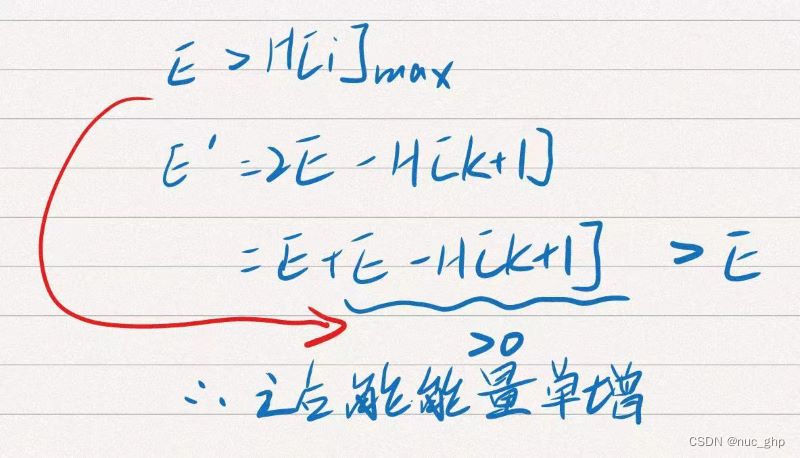 E > H[i]max
E' = 2E - H[k+1]
= E + E - H[k+1] > E
>0
∴ 之后能能量单增
CSDN @nuc_ghp